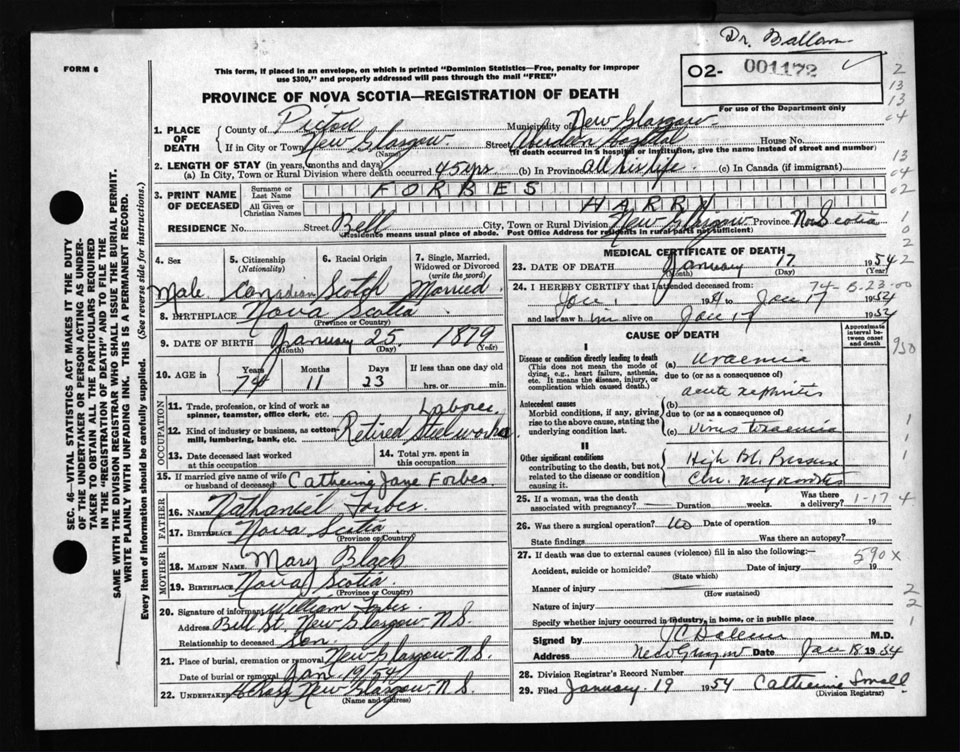 Dr. Ballam
FORM 6
This form, if placed in an envelope, on which is printed "Dominion Statistics—Free, penalty for improper
use $300," and properly addressed will pass through the mail "FREE"
O2- 001172
PROVINCE OF NOVA SCOTIA—REGISTRATION OF DEATH
For use of the Department only
1. PLACE OF DEATH
County of Pictou Municipality of New Glasgow
If in City or Town New Glasgow Street Aberdeen Hospital House No.
(Name) (If death occurred in a hospital or institution, give the name instead of street and number)
2. LENGTH OF STAY (in years, months and days)
(a) In City, Town or Rural Division where death occurred 45 yrs. (b) In Province All his life (c) In Canada (if immigrant)
3. PRINT NAME OF DECEASED
Surname or Last Name FORBES
All Given or Christian Names HARRY
RESIDENCE No. Street Bell City, Town or Rural Division New Glasgow Province Nova Scotia
(Residence means usual place of abode. Post Office Address for residents in rural parts not sufficient)
4. Sex Male
5. Citizenship (Nationality) Canadian
6. Racial Origin Scotch
7. Single, Married, Widowed or Divorced (write the word) Married
8. BIRTHPLACE Nova Scotia
(Province or Country)
9. DATE OF BIRTH January 25, 1879
(Month) (Day) (Year)
10. AGE in Years 74 Months 11 Days 23 If less than one day old
hrs. or min.
OCCUPATION
11. Trade, profession, or kind of work as
spinner, teamster, office clerk, etc. Laborer
12. Kind of industry or business, as cotton-
mill, lumbering, bank, etc. Retired Steelworker
13. Date deceased last worked
at this occupation
14. Total yrs. spent in
this occupation
15. If married give name of wife
or husband of deceased Catherine Jane Forbes
FATHER
16. NAME Nathaniel Forbes
17. BIRTHPLACE Nova Scotia
(Province or Country)
MOTHER
18. MAIDEN NAME Mary Black
19. BIRTHPLACE Nova Scotia
(Province or Country)
20. Signature of informant William Forbes
Address Bell St. New Glasgow N.S.
Relationship to deceased Son
21. Place of burial, cremation or removal New Glasgow N.S.
Date of burial or removal Jan. 19/54
22. Undertaker New Glasgow N.S.
(Name and address)
MEDICAL CERTIFICATE OF DEATH
23. DATE OF DEATH January 17 1954
(Month) (Day) (Year)
74- B-23-00
24. I HEREBY CERTIFY that I attended deceased from:
Jan. 1954 to Jan 17 1954
and last saw him alive on Jan 17 1954
CAUSE OF DEATH
Approximate interval between onset and death
I
Disease or condition directly leading to death
(This does not mean the mode of dying, e.g., heart failure, asthenia, etc. It means the disease, injury, or complication which caused death.)
(a) Uraemia
due to (or as a consequence of)
acute nephritis
Antecedent causes
Morbid conditions, if any, giving rise to the above cause, stating the underlying condition last.
(b)
due to (or as a consequence of)
(c) Virus
II
Other significant conditions
contributing to the death, but not related to the disease or condition causing it.
High Bl. Pressure
Chr. myocarditis
25. If a woman, was the death
associated with pregnancy? Duration weeks. Was there a delivery?
1-17 4
26. Was there a surgical operation? No Date of operation 19
State findings Was there an autopsy?
27. If death was due to external causes (violence) fill in also the following:
590 X
Accident, suicide or homicide? Date of injury 19
(State which)
Manner of injury
(How sustained)
Nature of injury
Specify whether injury occurred in industry, in home, or in public place
Signed by JC Ballem M.D.
Address New Glasgow Date Jan 18 1954
28. Division Registrar's Record Number
29. Filed January 19 1954 Catherine Small
(Division Registrar)
SEC. 46—VITAL STATISTICS ACT MAKES IT THE DUTY
OF THE UNDERTAKER OR PERSON ACTING AS UNDER-
TAKER TO OBTAIN ALL THE PARTICULARS REQUIRED
IN THE "REGISTRATION OF DEATH" AND TO FILE THE
SAME WITH THE DIVISION REGISTRAR WHO SHALL ISSUE THE BURIAL PERMIT.
WRITE PLAINLY WITH UNFADING INK. THIS IS A PERMANENT RECORD.
Every item of information should be carefully supplied. (See reverse side for instructions.)